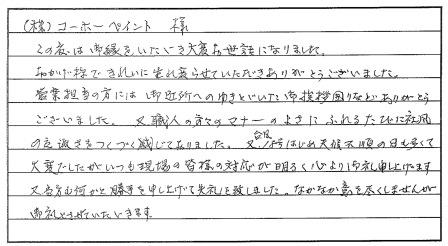 (株)コーホーペイント 様
この度は御縁をいただき大変お世話になりました。
おかげ様できれいに生れ変らせていただきありがとうございました。
営業担当の方には御近所へのゆきとどいた御挨拶回りなどありがとう
ございました。又職人の方々のマナーのよさにふれるたびに社風
の立派さをつくづく感じておりました。又、台風はじめ天候不順の日も多くて
大変でしたがいつも現場の皆様の対応が明るく心より御礼申し上げます
又 何かと勝手を申し上げて失礼を致しました。なかなか意を尽くしませんが
御礼とさせていただきます